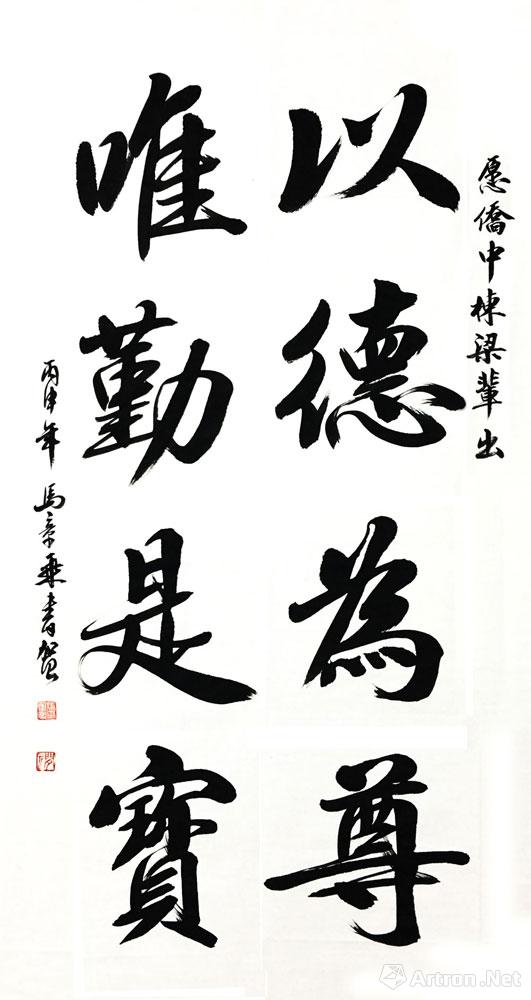 愿僑中棟梁輩出
以德為尊
唯勤是寶
丙申年 馬章乘書賀
Artron.Net